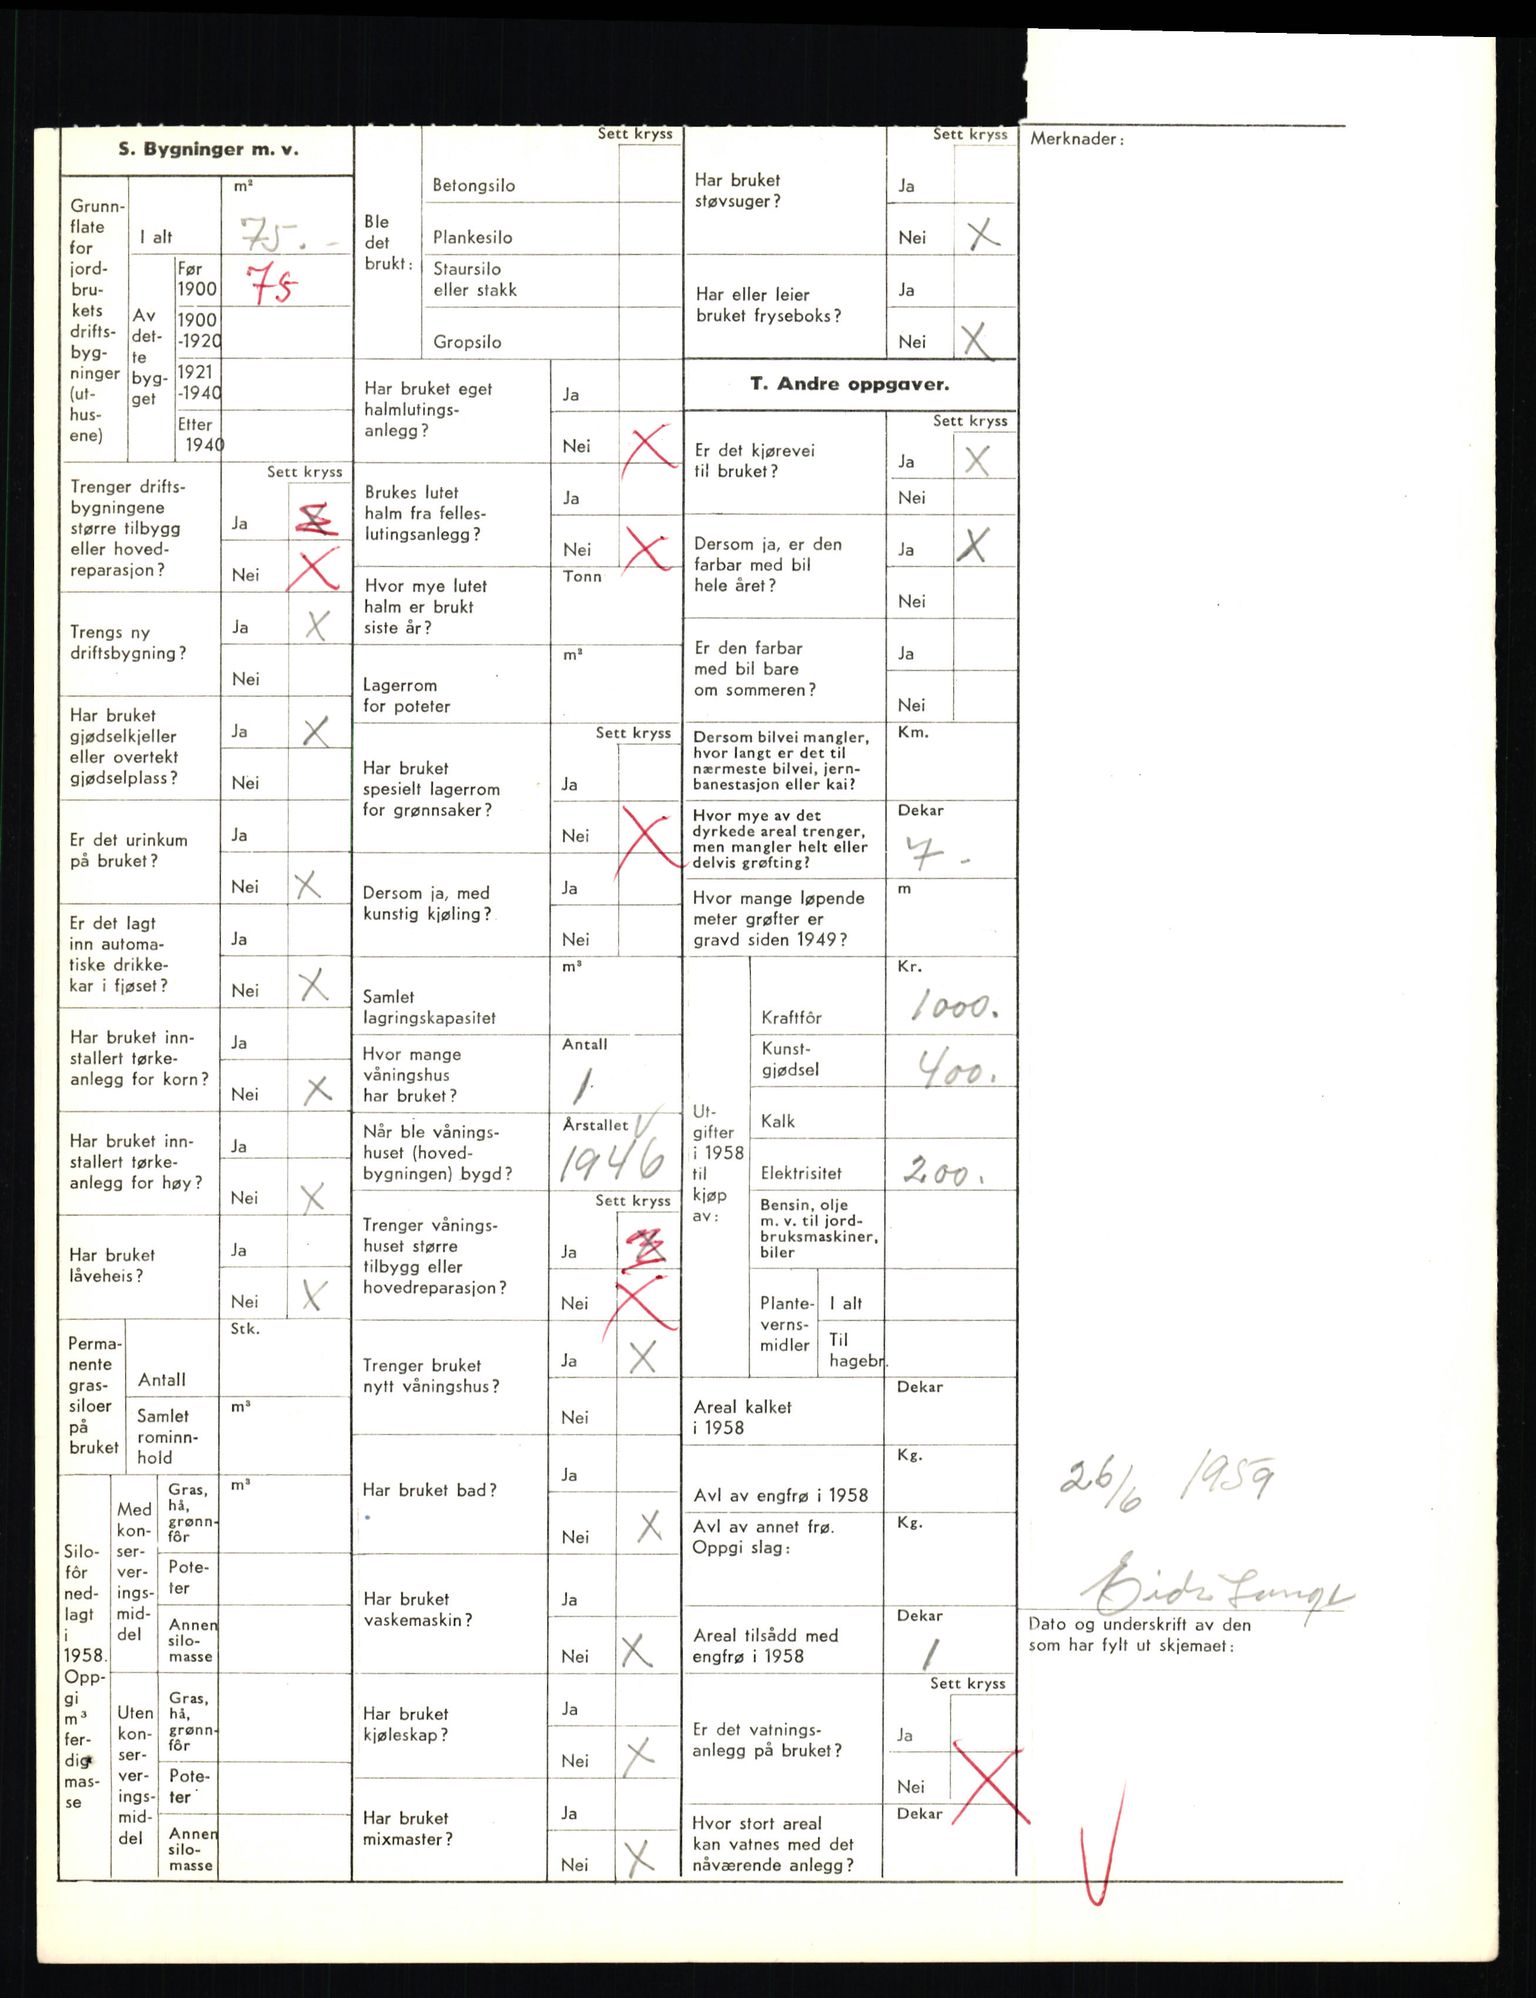 S. Bygninger m. v.
Grunn-
flate
for
jord-
bru-
kets
drifts-
byg-
ninger
(ut-
hus-
ene)
m²
I alt
75. -
Av
det-
te
byg-
get
Før
1900
75
1900
-1920
1921
-1940
Etter
1940
Sett kryss
Trenger drifts-
bygningene
større tilbygg
eller hoved-
reparasjon?
Ja X
Nei X
Trengs ny
driftsbygning?
Ja X
Nei
Har bruket
gjødselkjeller
eller overtekt
gjødselplass?
Ja X
Nei
Er det urinkum
på bruket?
Ja
Nei X
Er det lagt
inn automa-
tiske drikke-
kar i fjøset?
Ja
Nei X
Har bruket inn-
stallert tørke-
anlegg for korn?
Ja
Nei X
Har bruket inn-
stallert tørke-
anlegg for høy?
Ja
Nei X
Har bruket
låveheis?
Ja
Nei X
Perma-
nente
gras-
siloer
på
bruket
Stk.
Antall
Samlet
rominn-
hold
m³
Silo-
fôr
ned-
lagt
i
1958.
Opp-
gi
m³
fer-
dig
mas-
se
Med
kon-
ser-
ver-
ings-
mid-
del
Gras,
hå,
grønn-
fôr
m³
Pote-
ter
Annen
silo-
masse
Uten
kon-
ser-
ver-
ings-
mid-
del
Gras,
hå,
grønn-
fôr
Pote-
ter
Annen
silo-
masse
Sett kryss
Ble
det
brukt:
Betongsilo
Plankesilo
Staursilo
eller stakk
Gropsilo
Har bruket eget
halmlutings-
anlegg?
Ja
Nei X
Brukes lutet
halm fra felles-
lutingsanlegg?
Ja
Nei X
Hvor mye lutet
halm er brukt
siste år?
Tonn
Lagerrom
for poteter
m²
Sett kryss
Har bruket
spesielt lagerrom
for grønnsaker?
Ja
Nei X
Dersom ja, med
kunstig kjøling?
Ja
Nei
Samlet
lagringskapasitet
m³
Hvor mange
våningshus
har bruket?
Antall
1
Når ble vånings-
huset (hoved-
bygningen) bygd?
Årstallet
1946
Sett kryss
Trenger vånings-
huset større
tilbygg eller
hovedreparasjon?
Ja X
Nei X
Trenger bruket
nytt våningshus?
Ja X
Nei
Har bruket bad?
Ja
Nei X
Har bruket
vaskemaskin?
Ja
Nei X
Har bruket
kjøleskap?
Ja
Nei X
Har bruket
mixmaster?
Ja
Nei X
Sett kryss
Har bruket
støvsuger?
Ja
Nei X
Har eller leier
bruket fryseboks?
Ja
Nei X
T. Andre oppgaver.
Sett kryss
Er det kjørevei
til bruket?
Ja X
Nei
Dersom ja, er den
farbar med bil
hele året?
Ja X
Nei
Er den farbar
med bil bare
om sommeren?
Ja
Nei
Dersom bilvei mangler,
hvor langt er det til
nærmeste bilvei, jern-
banestasjon eller kai?
Km.
Hvor mye av det
dyrkede areal trenger,
men mangler helt eller
delvis grøfting?
Dekar
7 -
Hvor mange løpende
meter grøfter er
gravd siden 1949?
m
Ut-
gifter
i 1958
til
kjøp
av:
Kr.
Kraftfôr 1000.
Kunst-
gjødsel 400.
Kalk
Elektrisitet 200.
Bensin, olje
m. v. til jord-
bruksmaskiner,
biler
Plante-
verns-
midler
I alt
Til
hagebr.
Areal kalket
i 1958
Dekar
Avl av engfrø i 1958
Kg.
Avl av annet frø.
Oppgi slag:
Kg.
Areal tilsådd med
engfrø i 1958
Dekar
1
Sett kryss
Er det vatnings-
anlegg på bruket?
Ja
Nei X
Hvor stort areal
kan vatnes med det
nåværende anlegg?
Dekar
Merknader:
26/6 1959
Dato og underskrift av den
som har fylt ut skjemaet: